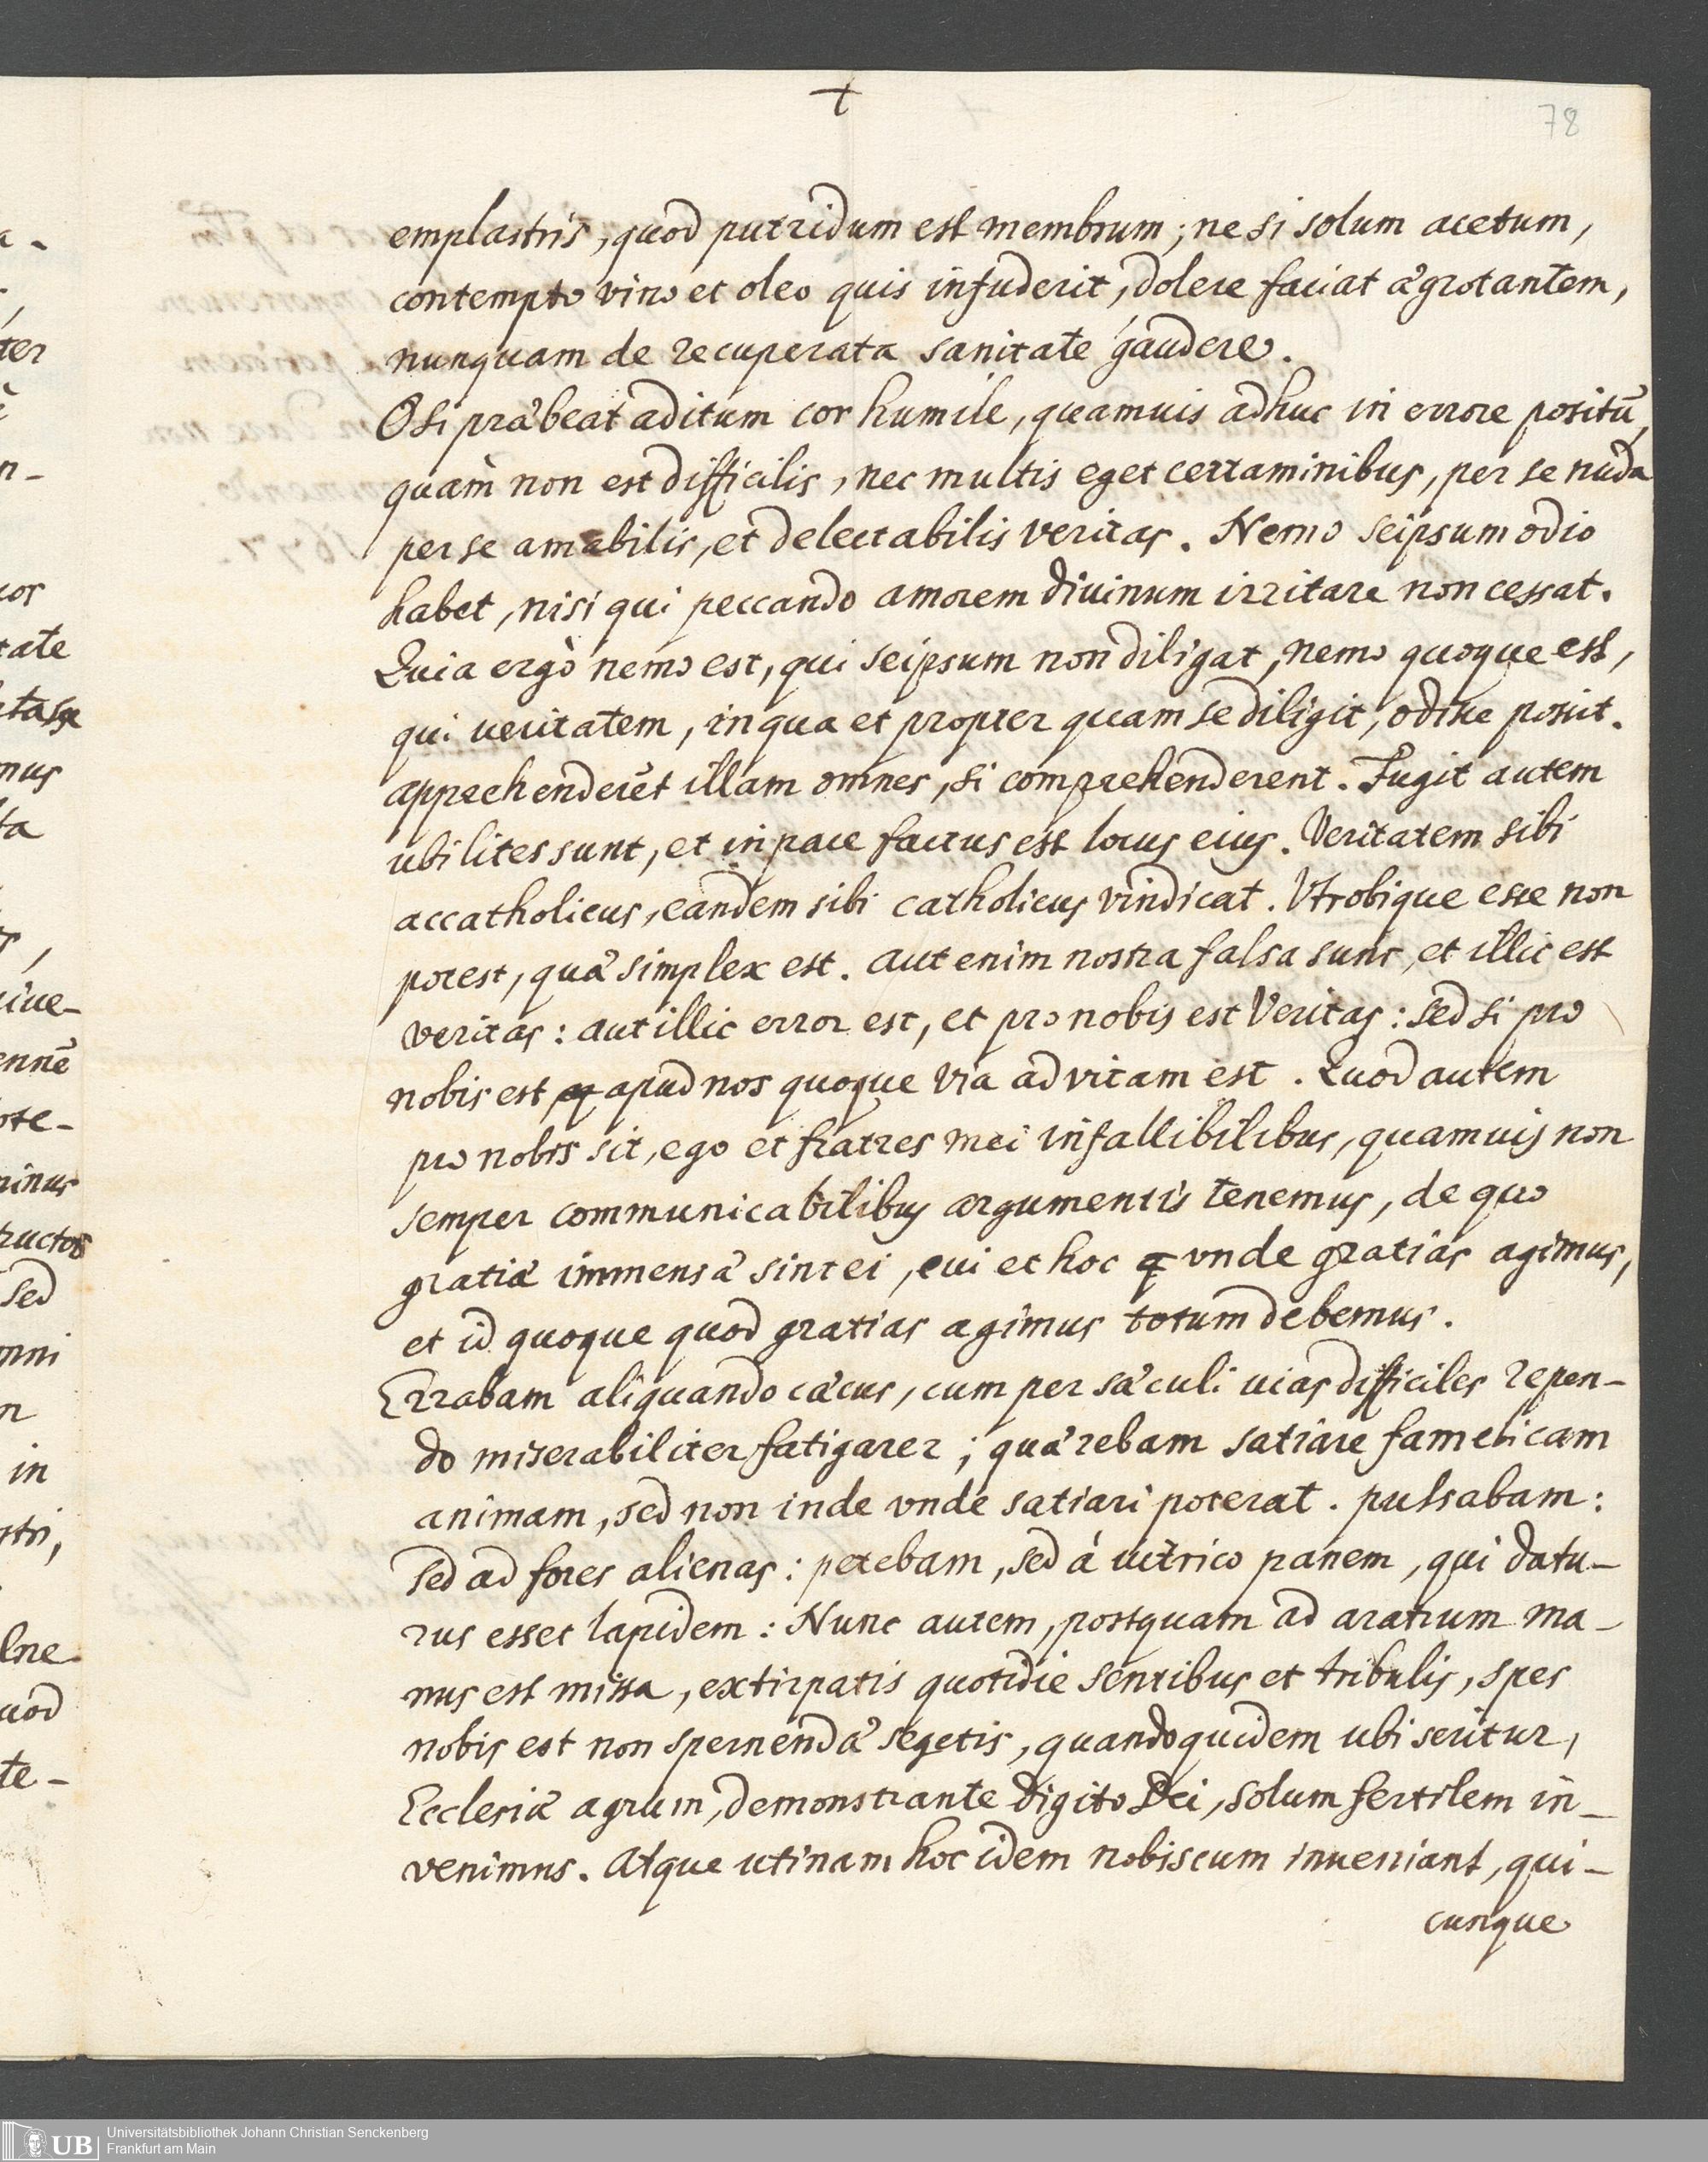 +
78
emplastris, quod putridum est membrum; ne si solum acetum,
contempto vino et oleo quis infuderit, dolere faciat ægrotantem,
nunquam de recuperata sanitate gaudere.
O si præbeat aditum cor humile, quamuis adhuc in errore positū,
quàm non est difficilis, nec multis eget certaminibus, per se nuda
per se amabilis, et delectabilis veritas. Nemo seipsum odio
habet, nisi qui peccando amorem diuinum irritare non cessat.
Quia ergò nemo est, qui seipsum non diligat, nemo quoque est,
qui veritatem, in qua et propter quam se diligit, odisse possit.
apprehenderēt illam omnes, si comprehenderent. Fugit autem
ubi lites sunt, et in pace factus est locus eius. Veritatem sibi
accatholicus, eandem sibi catholicus vindicat. Vtrobique esse non
potest, quæ simplex est. aut enim nostra falsa sunt, et illic est
veritas: aut illic error est, et pro nobis est Veritas: sed si pro
nobis est apud nos quoque via ad vitam est. Quod autem
pro nobis sit, ego et fratres mei infallibilibus, quamuis non
semper communicabilibus argumentis tenemus, de quo
gratiæ immensæ sint ei, cui et hoc vnde gratias agimus,
et id quoque quod gratias agimus totum debemus.
Errabam aliquando cæcus, cum per sæculi uias difficiles repen-
do miserabiliter fatigarer; quærebam satiare famelicam
animam, sed non inde vnde satiari poterat. pulsabam:
sed ad fores alienas: petebam, sed á uitrico panem, qui datu-
rus esset lapidem: Nunc autem, postquam ad aratrum ma-
nus est missa, extirpatis quotidie sentibus et tribulis, spes
nobis est non spernendæ segetis, quandoquidem ubi seritur,
Ecclesiæ agrum, demonstrante digito Dei, solum fertilem in-
venimus. Atque utinam hoc idem nobiscum inueniant, qui-
cunque
ter
tate
mus
ta
ote-
ructor
sed
omni
in
te-
UB Universitätsbibliothek Johann Christian Senckenberg
Frankfurt am Main